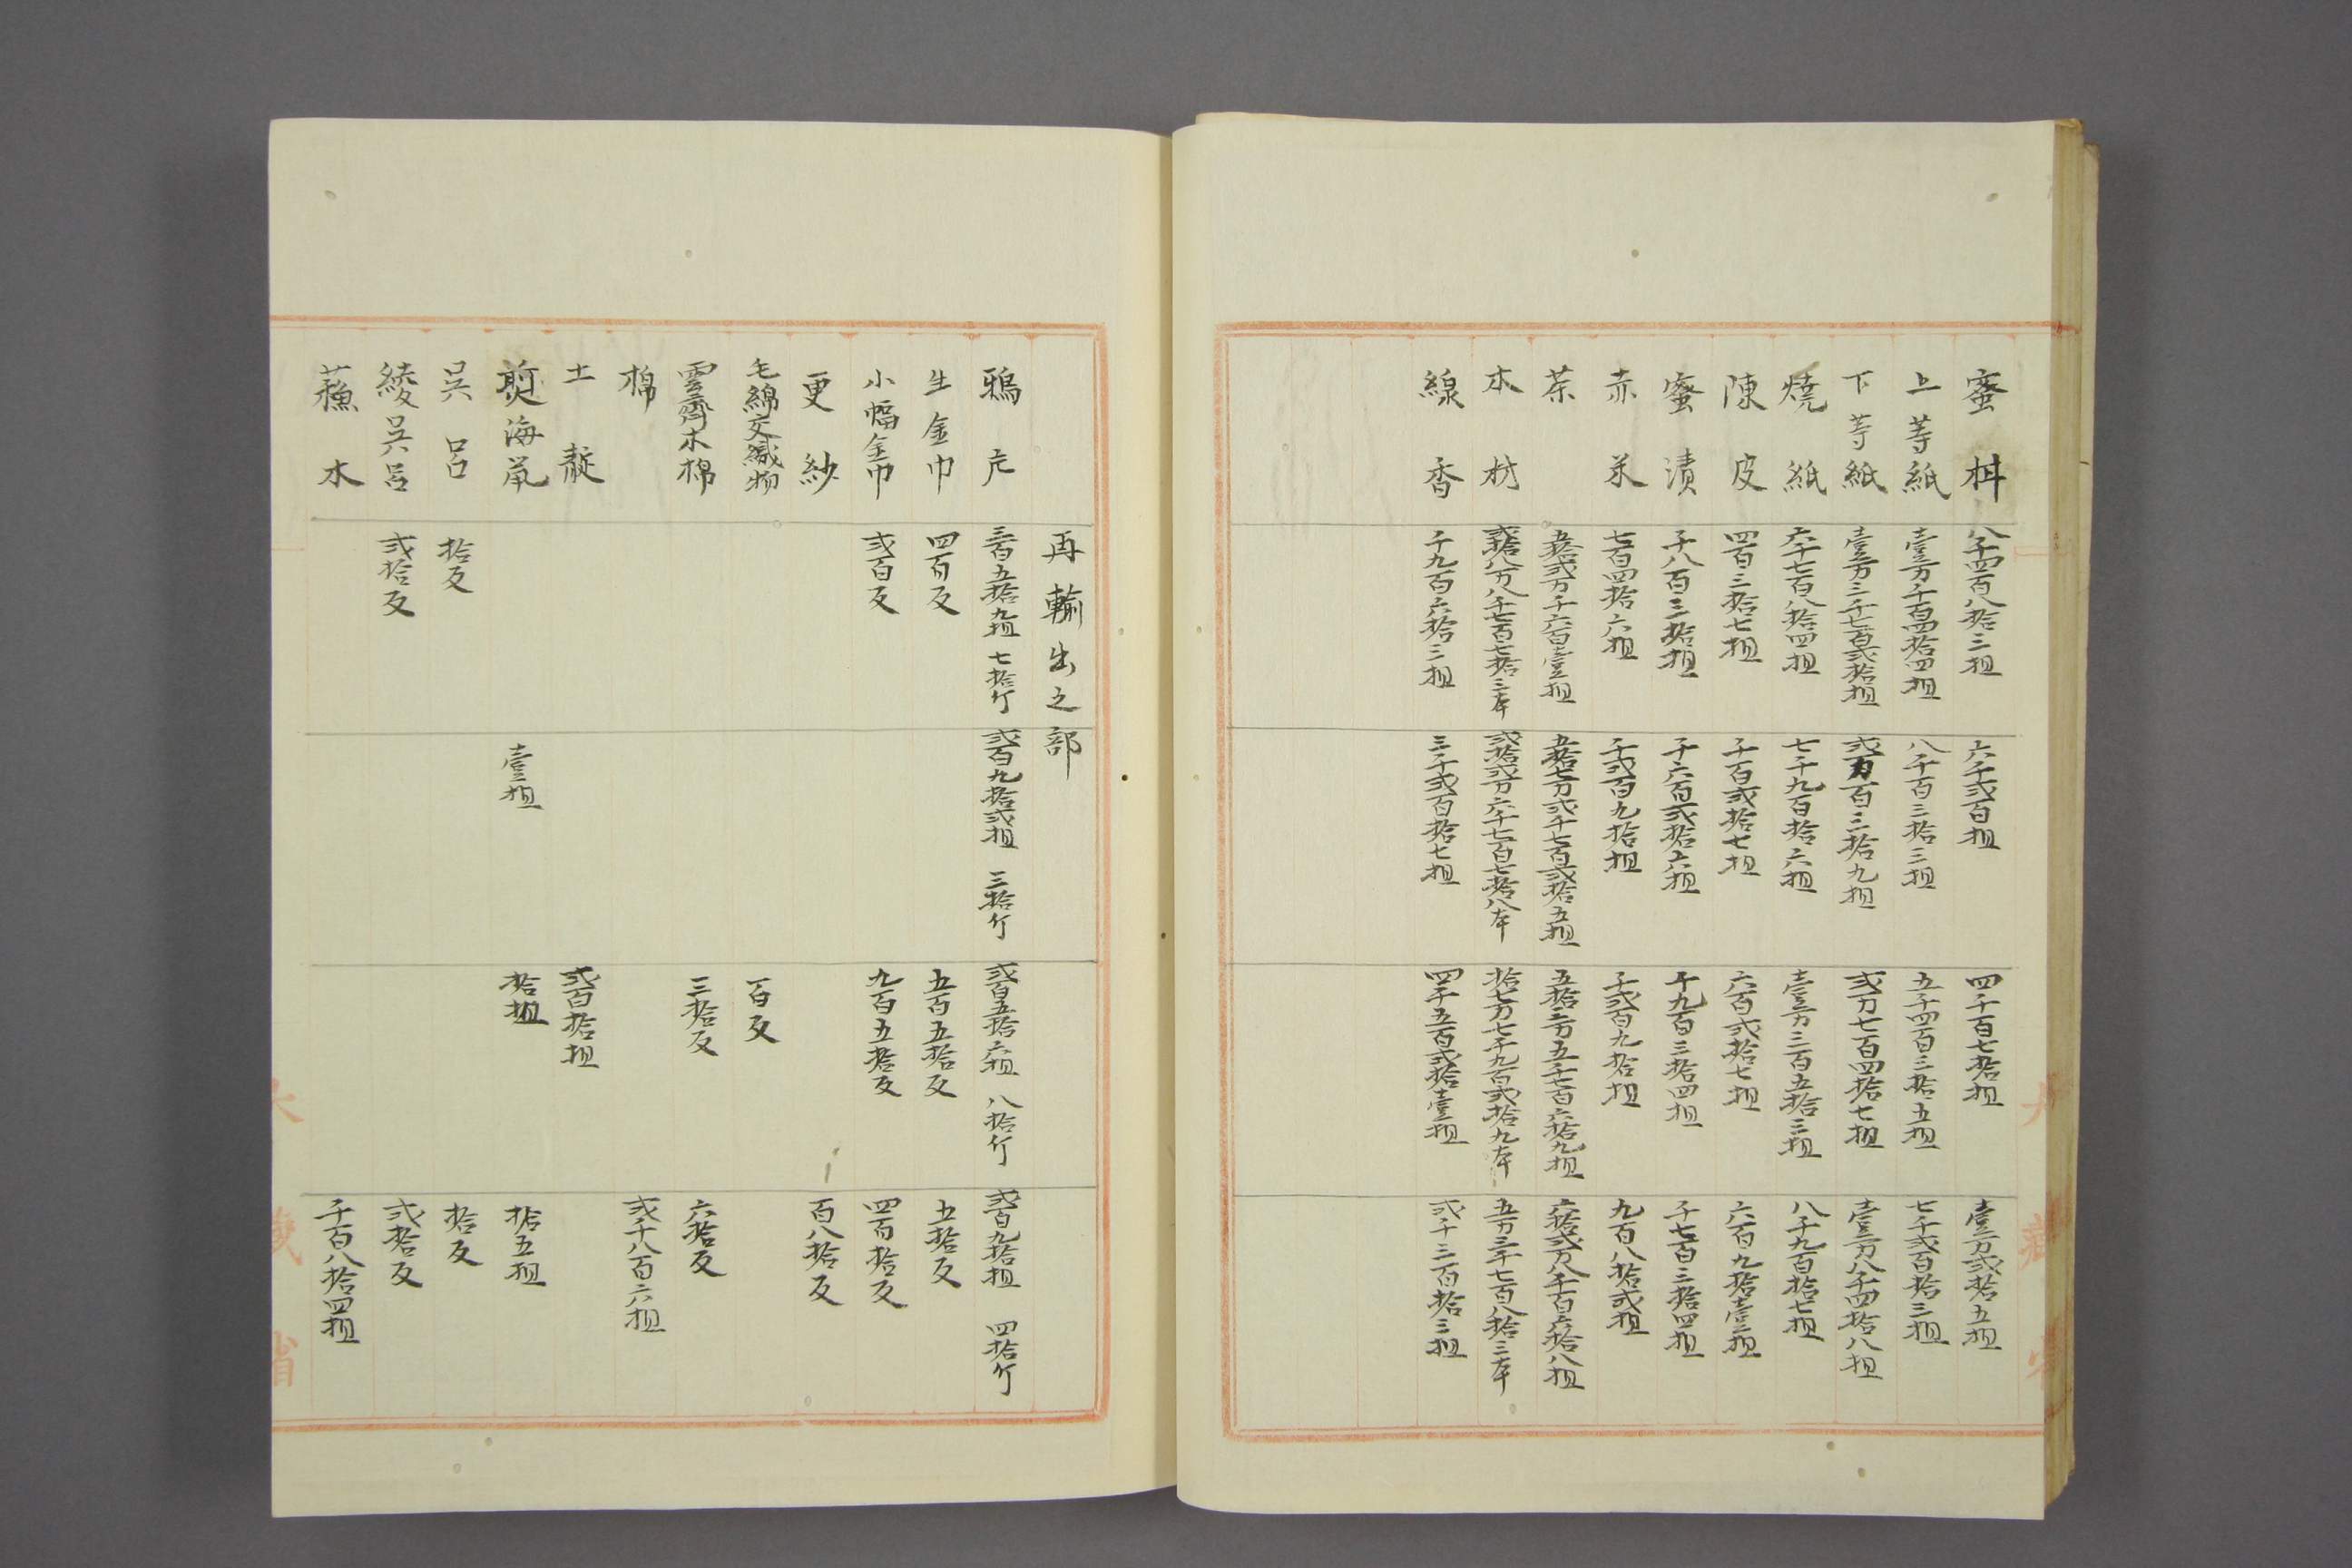 蜜柑 八千四百八拾三担 六千弐百担 四千百七拾担 壹万弐拾五担
上等紙 壹万千百四拾四担 八千百三拾三担 五千四百三拾五担 七千弐百拾三担
下等紙 壹万三千七百弐拾担 弐万百三拾九担 弐万七百四拾七担 壹万八千四拾八担
焼紙 六千七百八拾四担 七千九百拾六担 壹万三百五拾三担 八千九百拾七担
陳皮 四百三拾七担 千百弐拾七担 六百弐拾七担 六百九拾壹担
蜜漬 千八百三拾担 千六百弐拾六担 千九百三拾四担 千七百三拾四担
赤米 七百四拾六担 千弐百九拾担 千弐百九拾担 九百八拾弐担
茶 五拾弐万千六百壹担 五拾七万弐千七百弐拾五担 五拾三万五千七百六拾九担 六拾弐万八千百六拾八担
木材 弐拾八万八千七百七拾三本 弐拾弐万六千七百七拾八本 拾七万七千九百弐拾九本 五万三千七百八拾三本
線香 千九百六拾三担 三千弐百拾七担 四千五百弐拾壹担 弐千三百拾三担
再輸出之部
鴉片 三百五拾九担 七拾斤 弐百九拾弐担 三拾斤 弐百五拾六担 八拾斤 弐百九拾担 四拾斤
生金巾 四百反 五百五拾反 五拾反
小幅金巾 弐百反 九百五拾反 四百拾反
更紗 百八拾反
毛綿交織物 百反
雲齊木棉 三拾反 六拾反
棉 弐千八百六担
土靛 弐百拾担
煎海鼠 壹担 拾担 拾五担
呉呂 拾反 拾反
綾呉呂 弐拾反 弐拾反
蘓木 千百八拾四担
大藏省